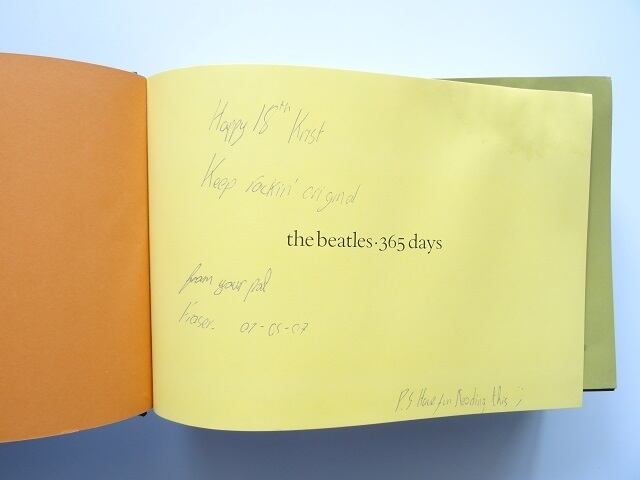 Happy 18th Krist
Keep rockin' original
the beatles·365 days
from your pal
Fraser. 07-05-07
P.S Have fun Reading this :